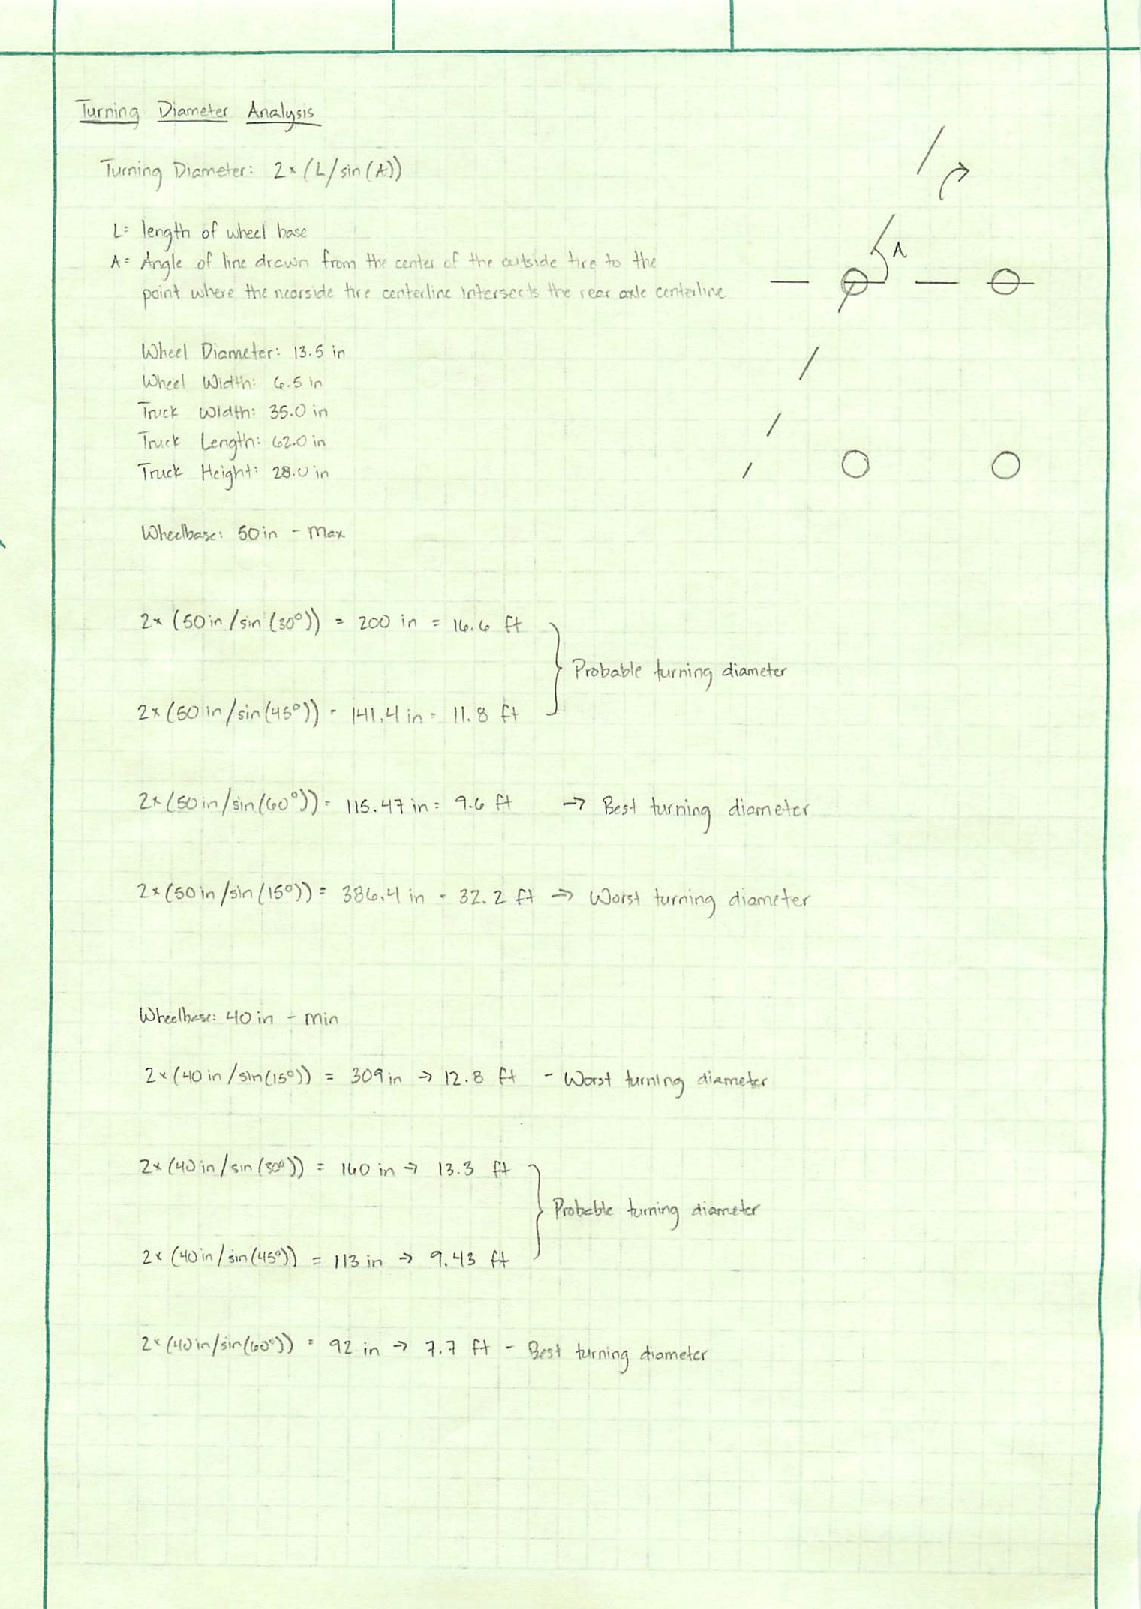 Turning Diameter Analysis
Turning Diameter: 2×(L/sin(A))
L= length of wheel base
A= Angle of line drawn from the center of the outside tire to the
point where the nearside tire centerline intersects the rear axle centerline
A
Wheel Diameter: 13.5 in
Wheel Width: 6.5 in
Truck Width: 35.0 in
Truck Length: 62.0 in
Truck Height: 28.0 in
Wheelbase: 50in - Max
2×(50in/sin(30°)) = 200 in = 16.6 ft
Probable turning diameter
2×(50in/sin(45°)) = 141.4 in = 11.8 ft
2×(50in/sin(60°)) = 115.47 in = 9.6 ft → Best turning diameter
2×(50in/sin(15°)) = 386.4 in = 32.2 ft → Worst turning diameter
Wheelbase: 40in - min
2×(40in/sin(15°)) = 309in → 12.8 ft - Worst turning diameter
2×(40in/sin(30°)) = 160 in → 13.3 ft
Probable turning diameter
2×(40in/sin(45°)) = 113 in → 9.43 ft
2×(40in/sin(60°)) = 92 in → 7.7 ft - Best turning diameter